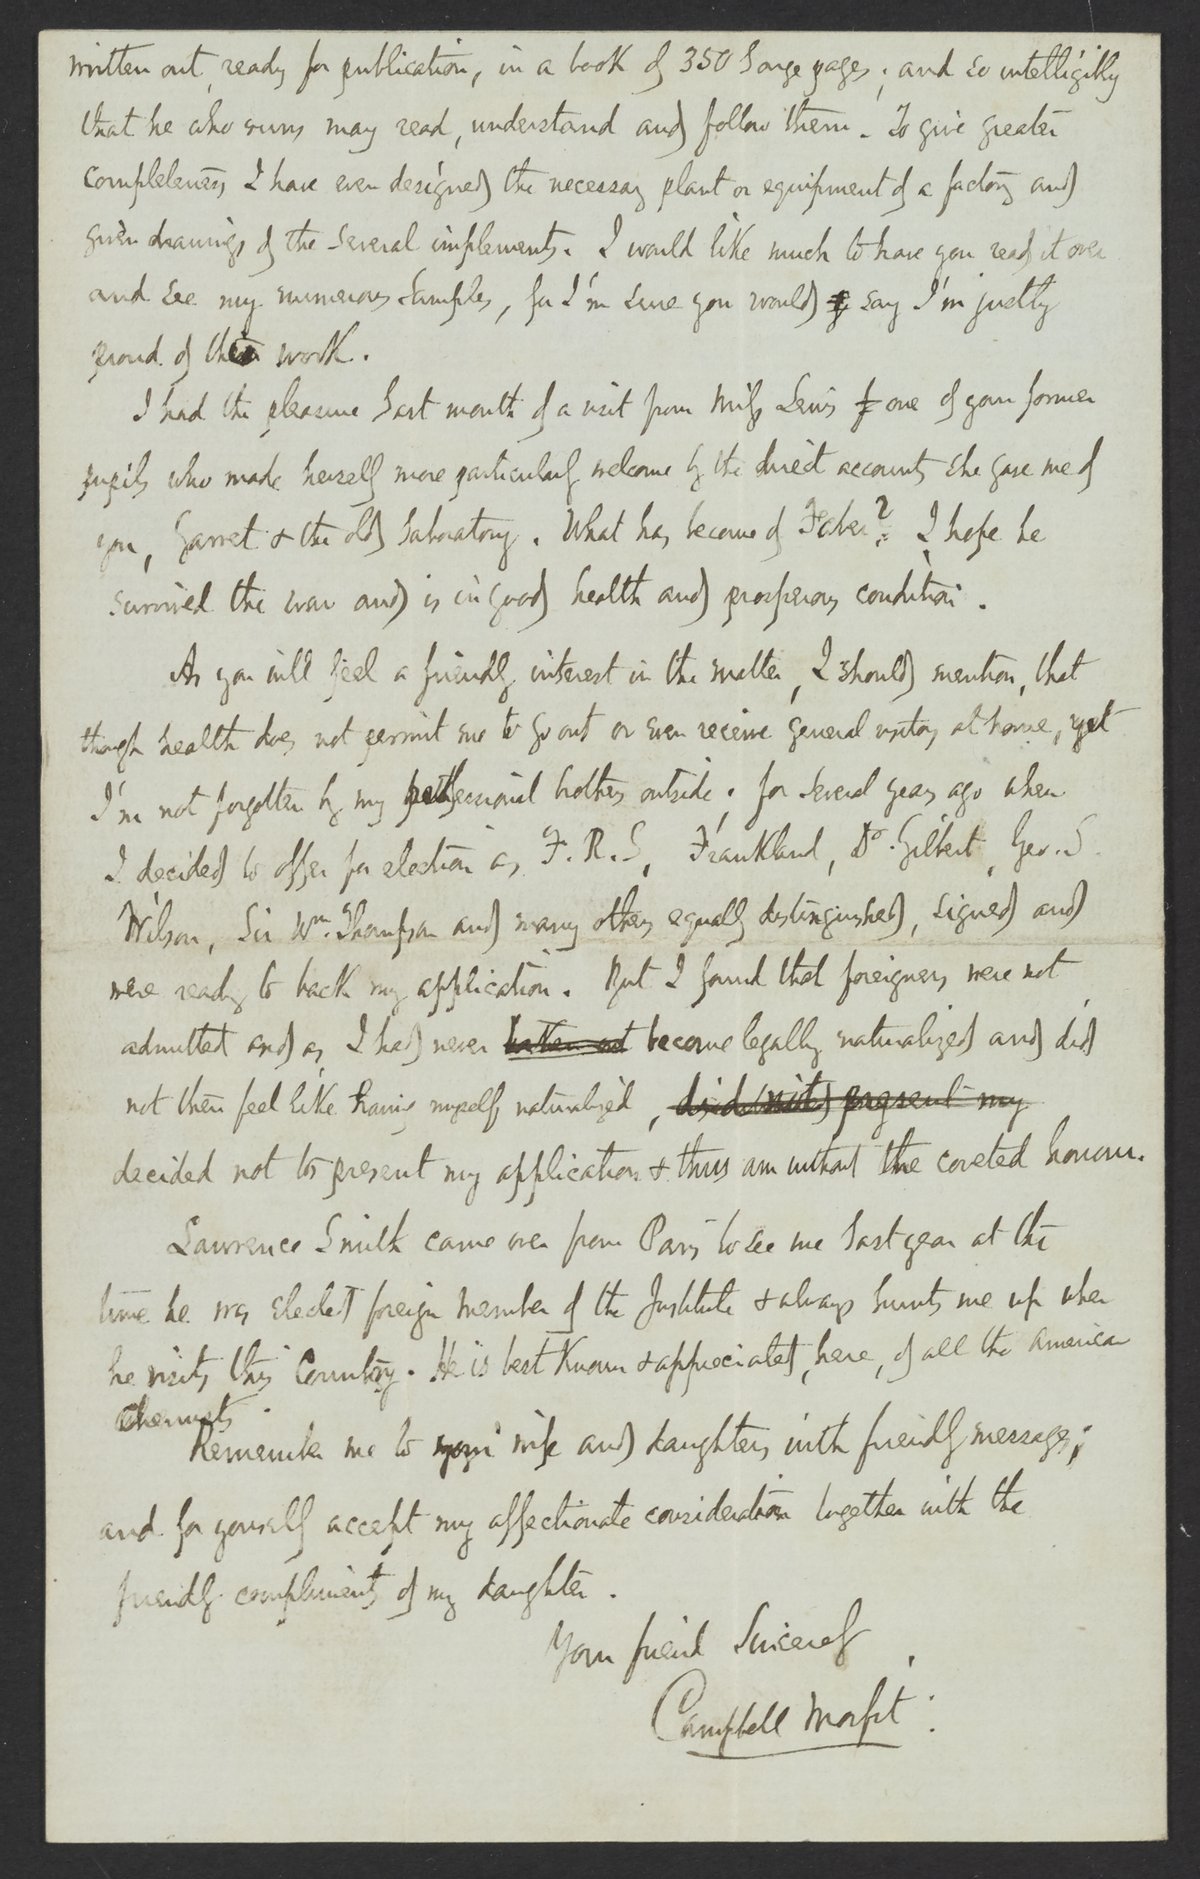 written out, ready for publication, in a book of 350 large pages; and so intelligibly
that he who runs may read, understand and follow them. To give greater
completeness I have even designed the necessary plant or equipment of a factory and
given drawings of the several implements. I would like much to have you read it over
and see my numerous samples, for I'm sure you would say I'm justly
proud of the work.
I had the pleasure last month of a visit from Miss Lewis one of your former
pupils who made herself more particularly welcome by the direct accounts she gave me of
you, Garret & the old laboratory. What has become of Faber? I hope he
survived the war and is in good health and prosperous condition.
As you will feel a friendly interest in the matter, I should mention, that
though health does not permit me to go out or even receive general visitors at home, yet
I'm not forgotten by my professional brothers outside. for several years ago when
I decided to offer for election as F.R.S, Frankland, Dr. Gilbert, Geo. S.
Wilson, Sir Wm. Thompson and many others equally distinguished, signed and
were ready to back my application. But I found that foreigners were not
admitted and as I had never become legally naturalized and did
not then feel like having myself naturalized, present my
decided not to present my application & thus am without the coveted honour.
Lawrence Smith came over from Paris to see me last year at the
time he was elected foreign member of the Institute & always hunts me up when
he visits this Country. He is best known & appreciated, here, of all the American
chemists.
Remember me to your wife and daughters with friendly messages;
and for yourself accept my affectionate consideration together with the
friendly compliments of my daughter.
Your friend Sincerely,
Campbell Morfit.